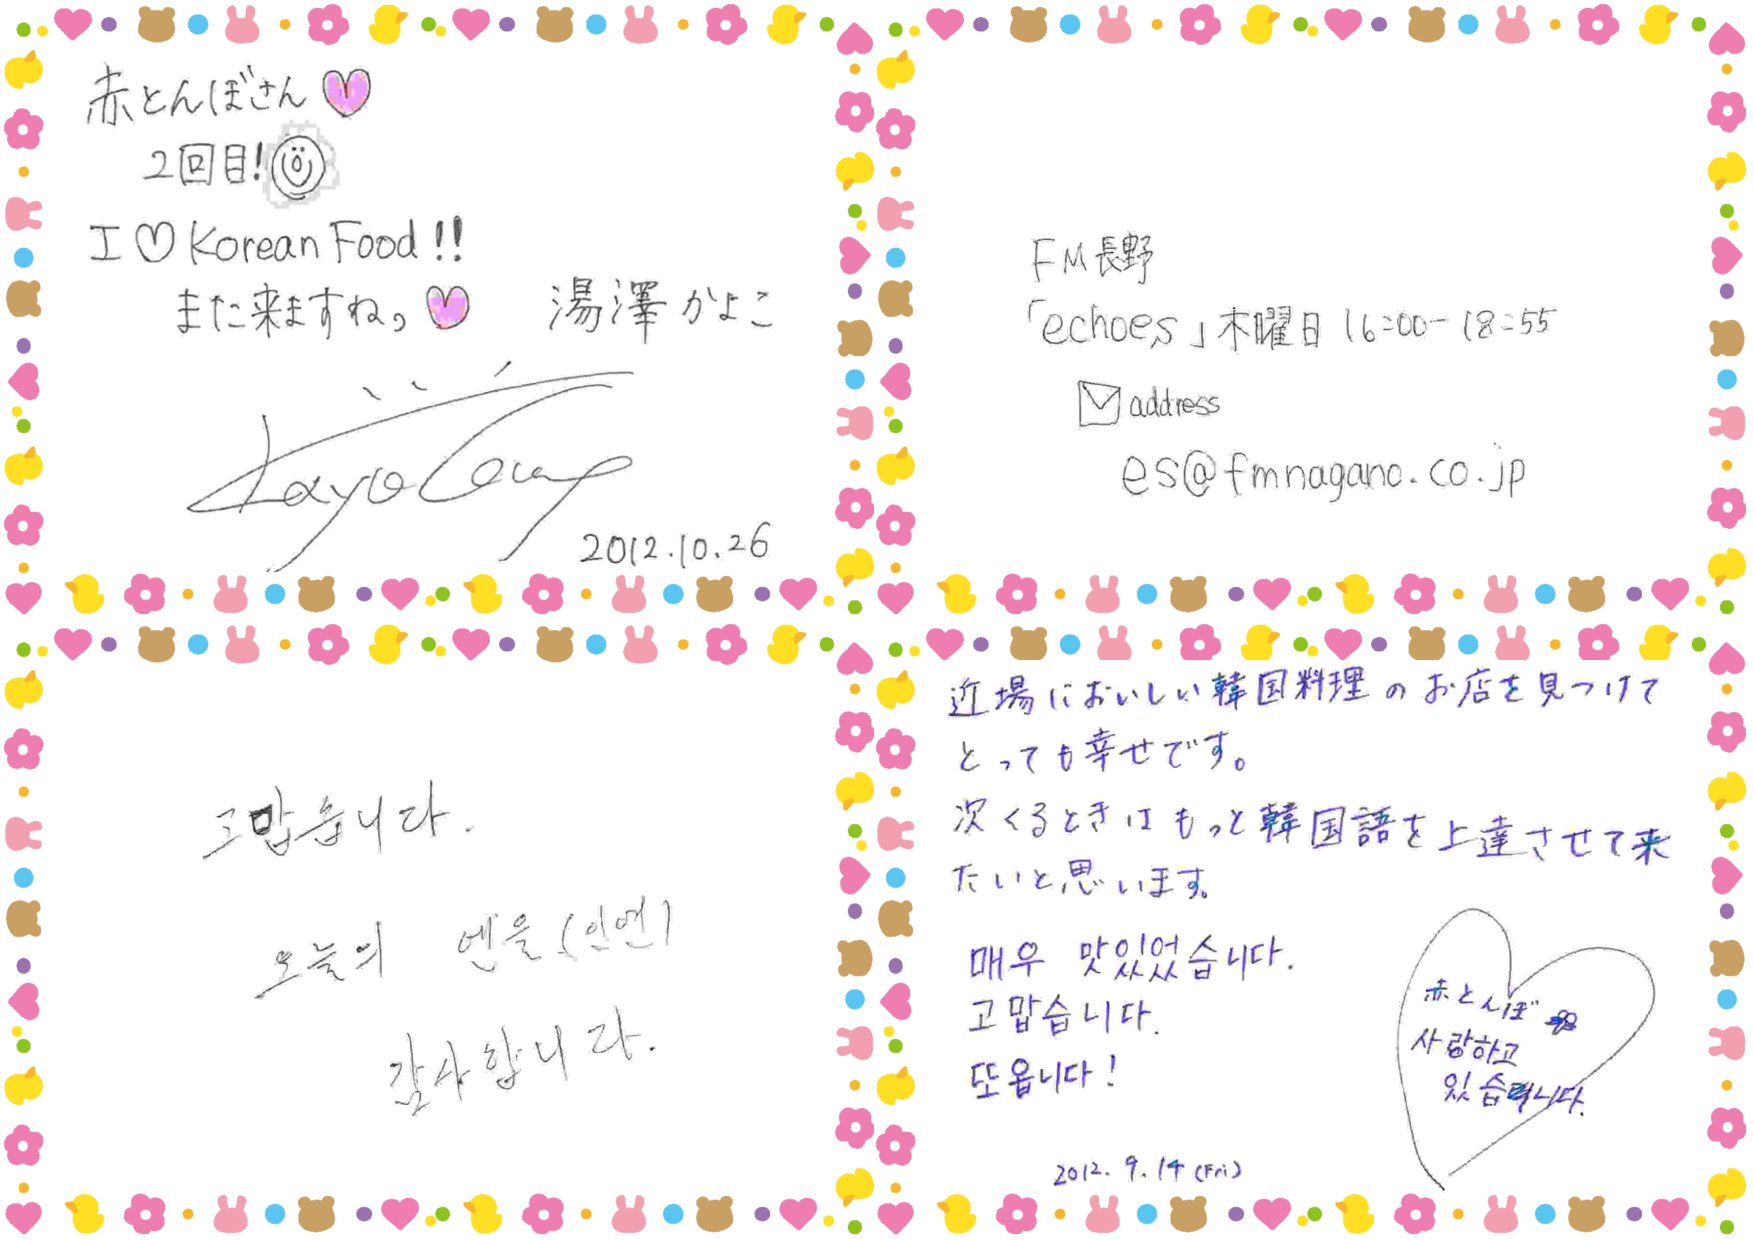 赤とんぼさん
2回目!
I ♡ Korean Food!!
また来ますねっ
湯澤かよこ
2012.10.26
FM長野
「echoes」木曜日 16:00-18:55
address
es@fmnagano.co.jp
고맙습니다.
오늘의 엔을(인연)
감사합니다.
近場においしい韓国料理のお店を見つけて
とっても幸せです。
次くるときはもっと韓国語を上達させて来
たいと思います。
매우 맛있었습니다.
고맙습니다.
또옵니다!
赤とんぼ
사랑하고
있습니다.
2012.9.14(Fri)